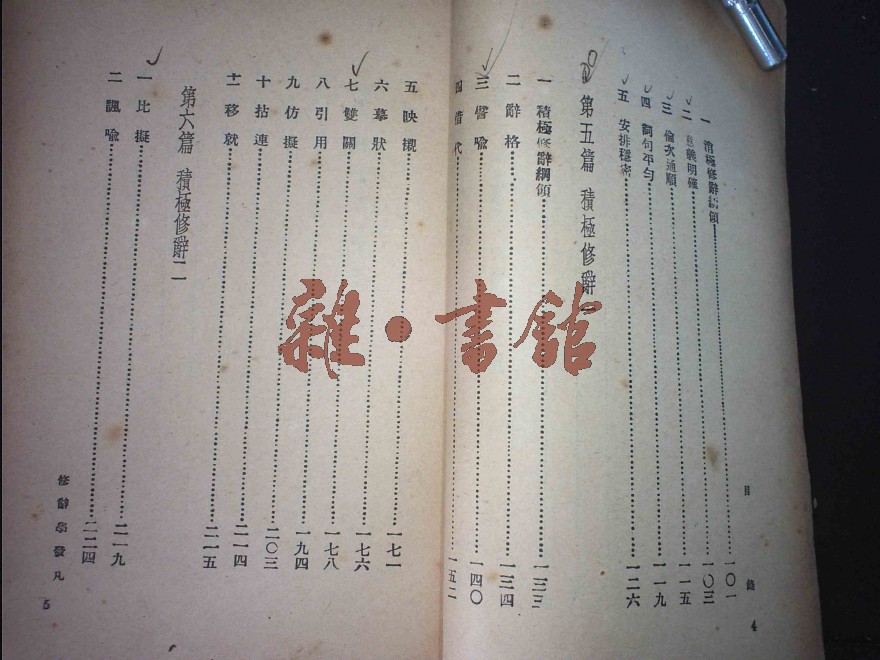 目錄
4
一 消極修辭綱領 一〇一
二 意義明確 一〇三
三 倫次通順 一一五
四 詞句平勻 一一九
五 安排穩密 一二六
第五篇 積極修辭一
一 積極修辭綱領 一三三
二 辭格 一三四
三 譬喩 一四〇
四 借代 一五二
五 映襯 一七一
六 摹狀 一七六
七 雙關 一七八
八 引用 一九四
九 仿擬 二〇三
十 拈連 二一四
十一 移就 二一五
第六篇 積極修辭二
一 比擬 二一九
二 諷喩 二二四
修辭學發凡
5
雜·書館